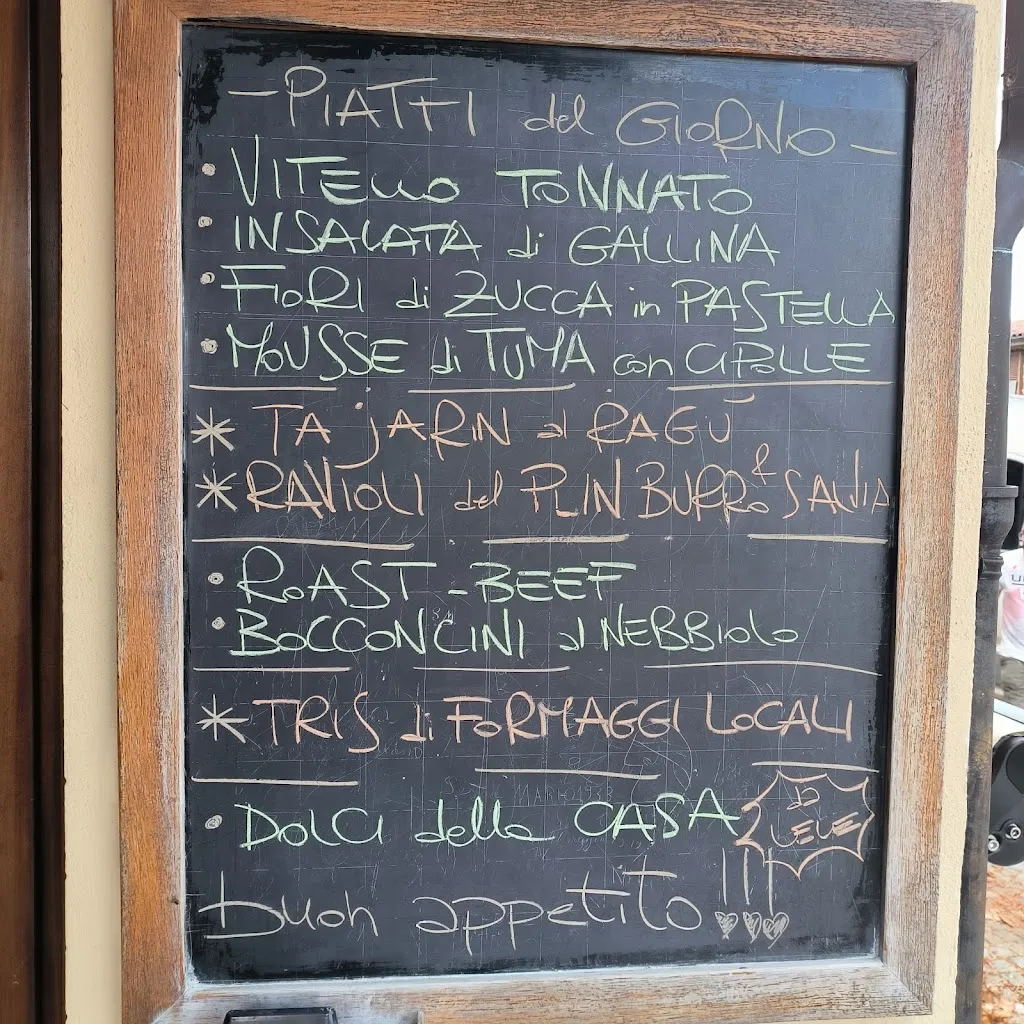 - PIATTI del GIORNO -
• VITELLO TONNATO
• INSALATA di GALLINA
• FIORI di ZUCCA in PASTELLA
• MOUSSE di TUMA con CIPOLLE
* TAJARIN al RAGÙ
* RAVIOLI del PLIN BURRO & SALVIA
• ROAST-BEEF
• BOCCONCINI al NEBBIOLO
* TRIS di FORMAGGI LOCALI
• DOLCI della CASA
DA LELE
buon appetito !!!